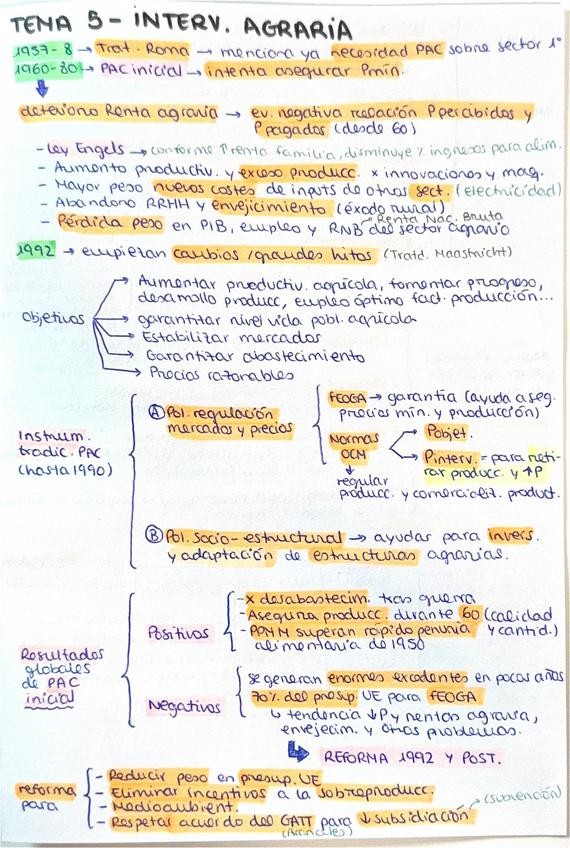 TEMA 5 - INTERV. AGRARIA
1957-8 → Trat. Roma → menciona ya necesidad PAC sobre sector 1º
1960-80 → PAC inicial → intenta asegurar Pmín.
deterioro Renta agraria → ev. negativa relación Ppercibidos y
Ppagados (desde 60)
- Ley Engels → conforme ↑ renta familia, disminuye % ingresos para alim.
- Aumento productiv. y exceso producc. x innovaciones y maq.
- Mayor peso nuevos costes de inputs de otros sect. (electricidad)
- Abandono RRHH y envejecimiento (éxodo rural)
Renta Nac. Bruta
- Pérdida peso en PIB, empleo y RNB del sector agrario
1992 → empiezan cambios /grandes hitos (Tratd. Maastricht)
Objetivos
Aumentar productiv. agrícola, fomentar progreso,
desarrollo producc, empleo óptimo fact. producción...
garantizar nivel vida pobl. agrícola
Estabilizar mercados
Garantizar abastecimiento
Precios razonables
Instrum.
tradic. PAC
(hasta 1990)
A Pol. regulación
mercados y precios
FEOGA → garantía (ayuda a seg.
precios mín. y producción)
Normas
OCM
Pobjet.
Pinterv. = para reti-
rar producc. y ↑P
↓
regular
producc. y comercializ. product.
B Pol. socio-estructural → ayudas para invers.
y adaptación de estructuras agrarias.
Resultados
globales
de PAC
inicial
Positivos
- X desabastecim. tras guerra
- Asegura producc. durante 60 (calidad
y cantid.)
- PPMM superan rápido penuria
alimentaria de 1950
Negativos
se generan enormes excedentes en pocos años
70% del presup. UE para FEOGA
↳ tendencia ↓P y rentas agraria,
envejecim. y otros problemas.
↳ REFORMA 1992 Y POST.
reforma
para
- Reducir peso en presup. UE
- Eliminar incentivos a la sobreproducc.
- Medioambient.
(subvención)
- Respetar acuerdo del GATT para ↓ subsidiación
(Aranceles)